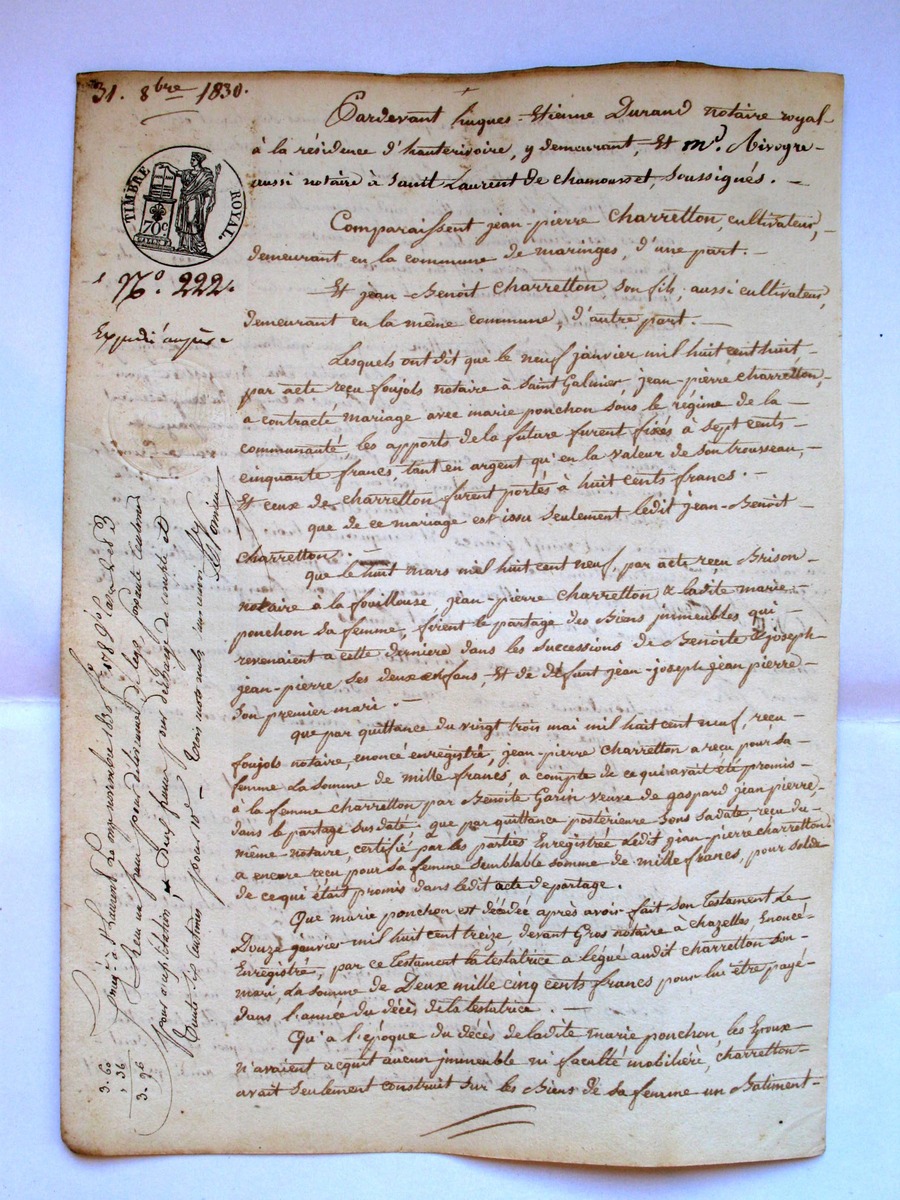 31. 8bre 1830.
TIMBRE ROYAL
70c
N°. 222.
Pardevant hugues-Etienne Durand notaire royal
à la résidence d'hauterivoire, y demeurant, Et me.
aussi notaire à Saint Laurent de chamousset, soussignés. —
Comparaissent jean-pierre Charretton, cultivateur, —
demeurant en la commune de maringes, d'une part. —
Et jean-Benoit Charretton, son fils, aussi cultivateur,
demeurant en la même commune, d'autre part. —
Lesquels ont dit que le neuf janvier mil huit cent huit —
par acte reçu foujols notaire à Saint Galmier jean-pierre charretton, —
a contracté mariage avec marie ponchon sous le régime de la —
communauté, les apports de la future furent fixés à sept cents —
cinquante francs, tant en argent qu'en la valeur de son trousseau, —
Et ceux de charretton furent portés à huit cents francs. —
que de ce mariage est issu seulement ledit jean-Benoit —
charretton. —
que le huit mars mil huit cent neuf, par acte recu Brison —
notaire à la fouillouse, jean-pierre charretton & ladite marie —
ponchon sa femme, firent le partage des Biens immeubles qui —
revenaient a cette derniere dans les successions de Benoite & joseph
jean-pierre, ses deux enfans, Et de défunt jean-joseph jean pierre —
son premier mari. —
que par quittance du vingt trois mai mil huit cent neuf, recu —
foujols notaire, enoncé enregistré, jean-pierre charretton a reçu pour sa —
femme la somme de mille francs, a compte de ce qui avait été promis —
à la femme charretton par Benoite Garin veuve de gaspard jean pierre,
dans le partage susdaté: que par quittance postérieure sans sa date, reçu du —
même notaire, certifié par les parties Enregistrée ledit jean-pierre charretton
a encore reçu pour sa femme semblable somme de mille francs, pour solde
de ce qui était promis dans ledit acte de partage.
Que marie ponchon est décédée après avoir fait son Testament Le —
Douze janvier mil huit cent treize, devant Gras notaire à chazelles, Enoncé —
Enregistré, par ce Testament la testatrice a légué audit charretton son —
mari, La somme de Deux mille cinq cents francs pour lui être payé —
dans l'année du décès de la testatrice. —
Qu'a l'époque du décès de ladite marie ponchon, les Epoux —
n'avaient acquit aucun immeuble ni faculté mobiliére, charretton —
avait seulement construit sur les Biens de sa femme un Batiment —
Reçu un franc pour
neuf francs pour
trois mots nuls
3. 60
. 36
3. 96